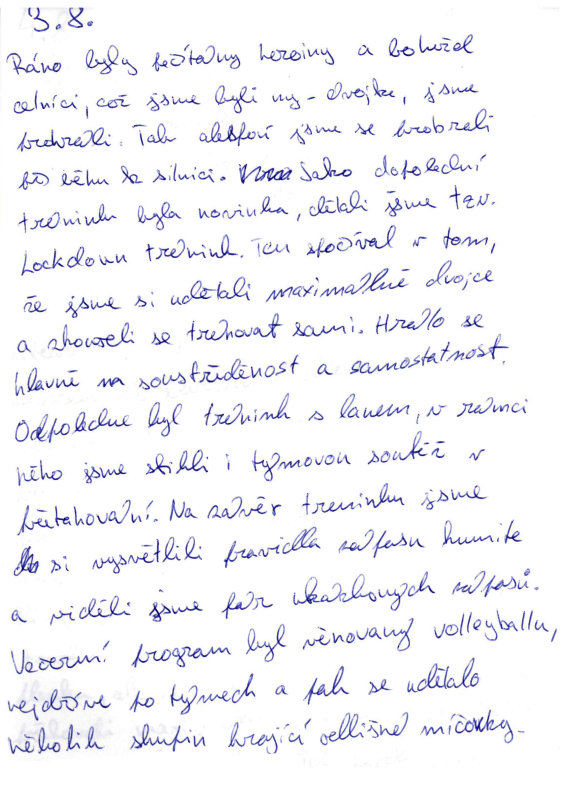 3.8.
Ráno byly počítány heroiny a bohužel
celníci, což jsme byli my - dvojka, jsme
prohráli. Tak alespoň jsme se probrali
po běhu k silnici. Jako dopolední
trénink byla novinka, dělali jsme tzv.
Lockdown trénink. Ten spočíval v tom,
že jsme si udělali maximálně dvojce
a zkoušeli se trénovat sami. Hrálo se
hlavně na soustředěnost a samostatnost.
Odpoledne byl trénink s lanem, v rámci
něho jsme stihli i týmovou soutěž v
přetahování. Na závěr tréninku jsme
si vysvětlili pravidla zápasu kumite
a viděli jsme pár ukázkových zápasů.
Večerní program byl věnovaný volleyballu,
nejdříve po týmech a pak se udělalo
několik skupin hrající odlišné míčovky.